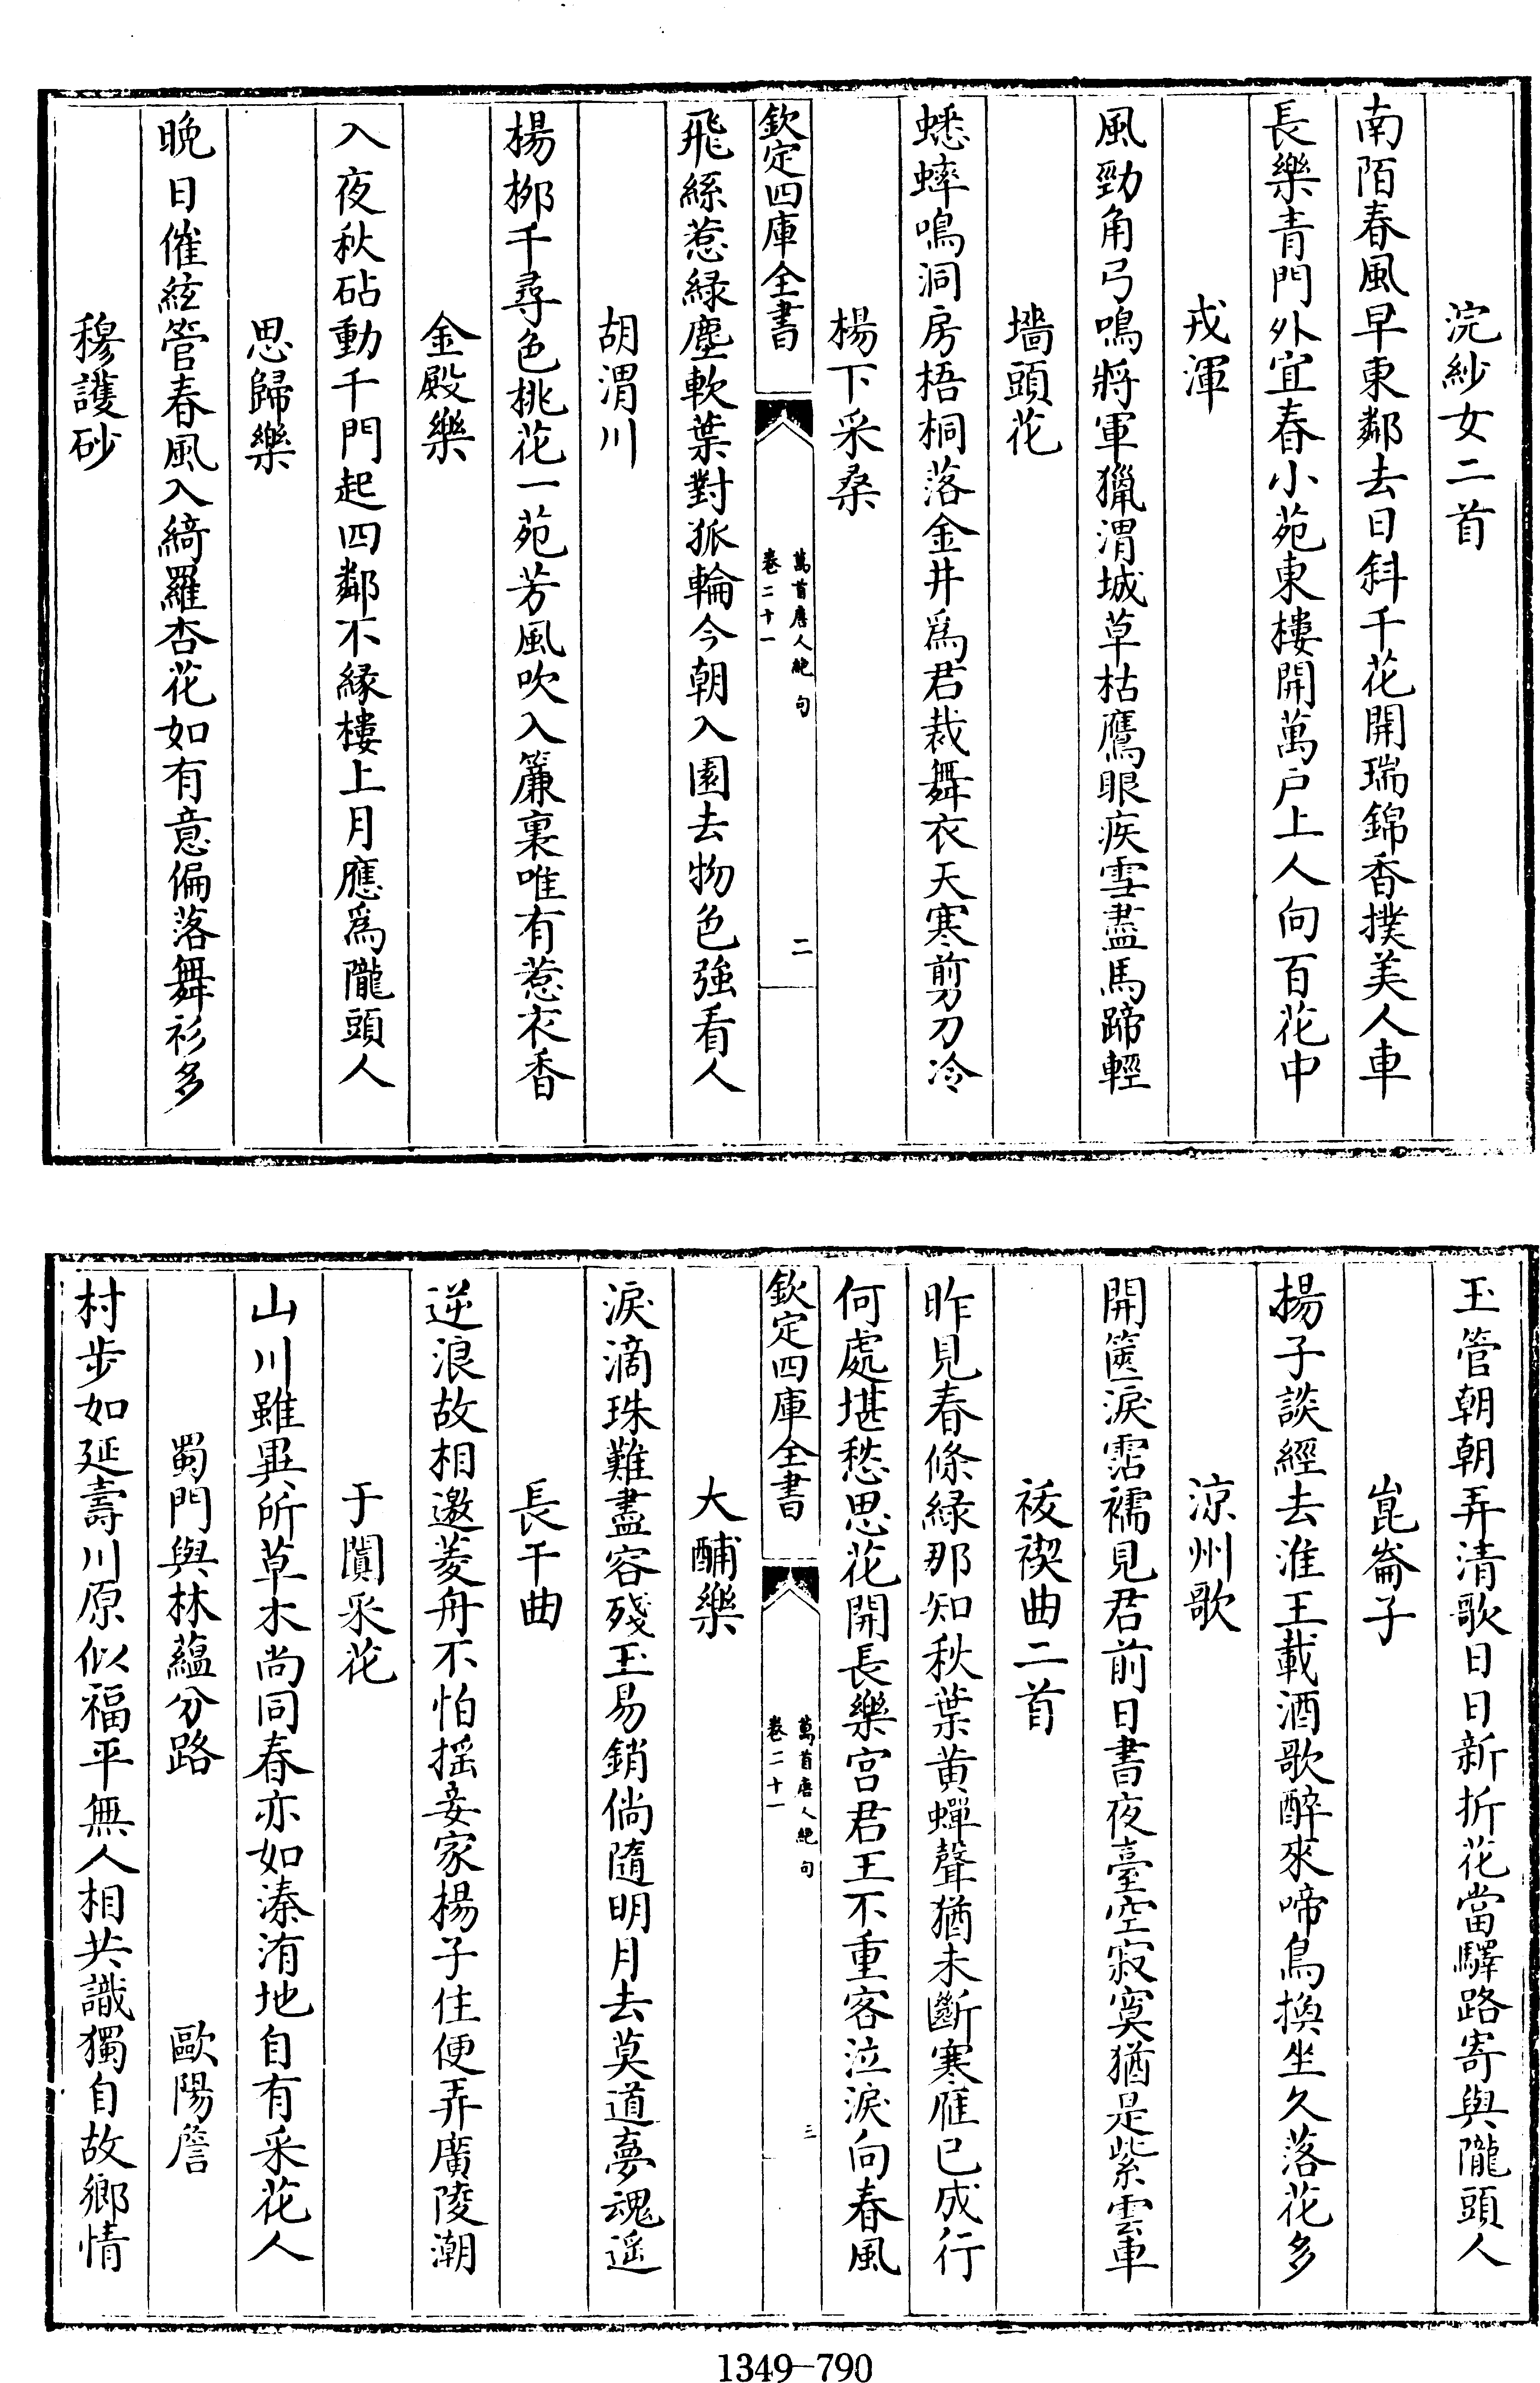 浣紗女二首
南陌春風早東鄰去日斜千花開瑞錦香撲美人車
長樂青門外宜春小苑東樓開萬户上人向百花中
戎渾
風勁角弓鳴將軍獵渭城草枯鷹眼疾雪盡馬蹄輕
墻頭花
蟋蟀鳴洞房梧桐落金井爲君裁舞衣天寒剪刀冷
楊下采桑
欽定四庫全書
萬首唐人絶句
卷二十一
二
飛絲惹緑塵軟葉對孤輪今朝入園去物色強看人
胡渭川
楊栁千尋色桃花一苑芳風吹入簾裏唯有惹衣香
金殿樂
入夜秋砧動千門起四鄰不緣樓上月應爲隴頭人
思歸樂
晩日催絃管春風入綺羅杏花如有意偏落舞衫多
穆護砂
玉管朝朝弄清歌日日新折花當驛路寄與隴頭人
崑崙子
揚子談經去淮王載酒歌醉來啼鳥換坐久落花多
涼州歌
開篋淚霑襦見君前日書夜臺空寂寞猶是紫雲車
祓禊曲二首
昨見春條緑那知秋葉黄蟬聲猶未斷寒雁已成行
何處堪愁思花開長樂宫君王不重客泣淚向春風
欽定四庫全書
萬首唐人絶句
卷二十一
三
大酺樂
淚滴珠難盡容殘玉易銷倘隨明月去莫道夢魂遥
長干曲
逆浪故相邀菱舟不怕摇妾家楊子住便弄廣陵潮
于闐采花
山川雖異所草木尚同春亦如溱洧地自有采花人
蜀門與林藴分路 歐陽詹
村步如延壽川原似福平無人相共識獨自故鄉情
1349-790